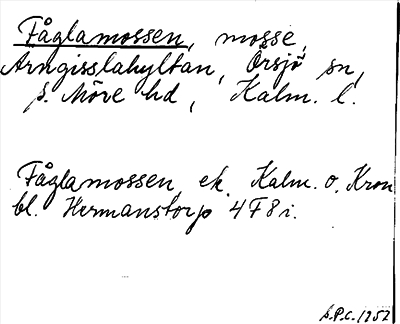 Fåglamossen, mosse,
Arngisslahyltan, Örsjö sn,
s. Möre hd, Kalm. l.
Fåglamossen, ek. Kalm. o. Kron
bl. Hermanstorp 4F8i.
S.P.C. 1957